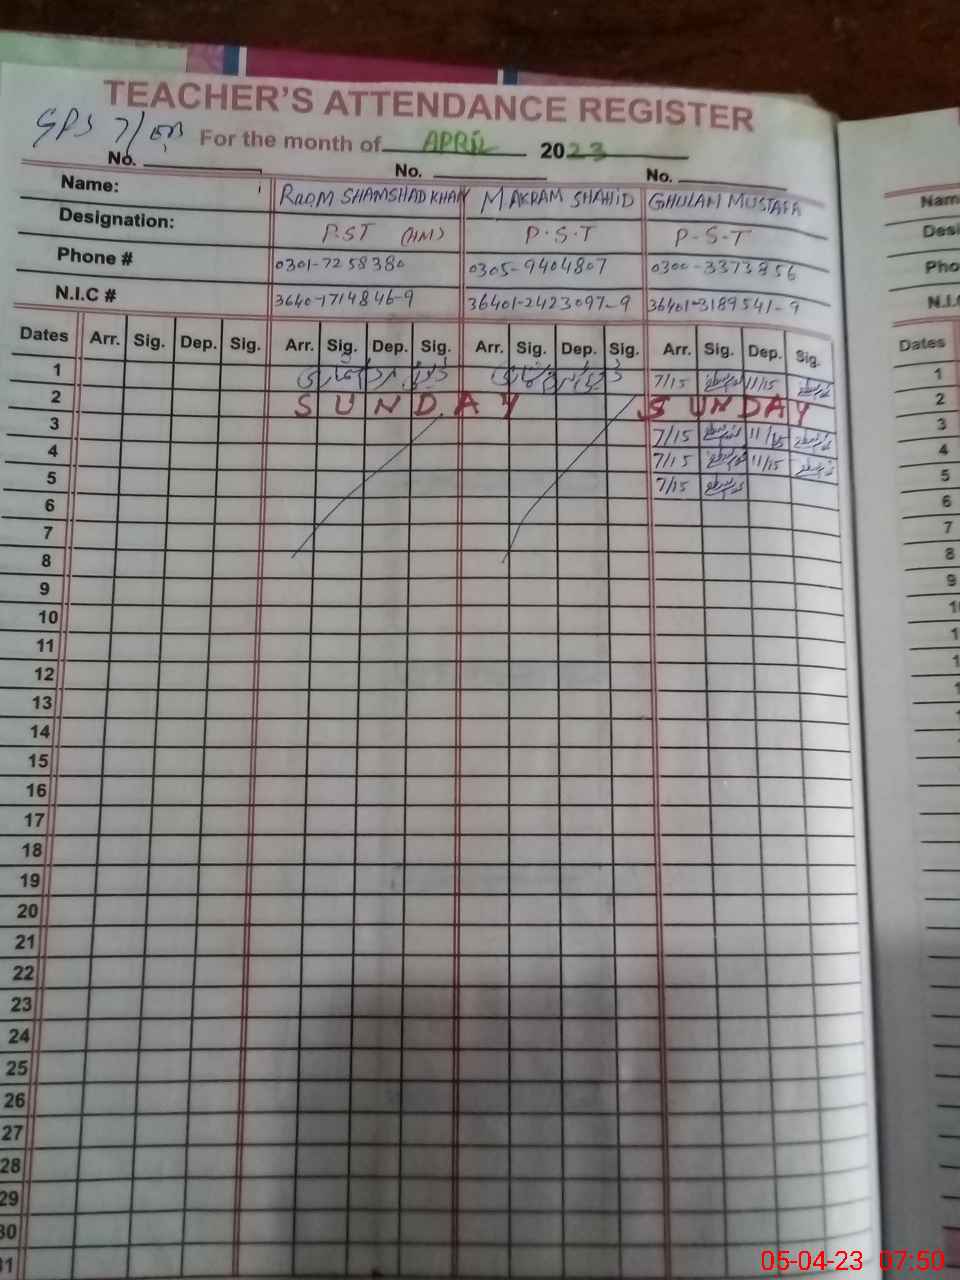 TEACHER'S ATTENDANCE REGISTER
GPS 7/EB
For the month of APRIL 2023
No. No. No.
Name: RaoM SHAMSHAD KHAN M. AKRAM SHAHID GHULAM MUSTAFA
Designation: P.ST (HM) P.S.T P-S-T
Phone # 0301-7258380 0305-9404807 0300-3373856
N.I.C # 3640-1714846-9 36401-2423097-9 36401-3189541-9
Dates Arr. Sig. Dep. Sig. Arr. Sig. Dep. Sig. Arr. Sig. Dep. Sig. Arr. Sig. Dep. Sig.
1 7/15 11/15
2 SUNDAY SUNDAY
3 7/15 11/15
4 7/15 11/15
5 7/15
6
7
8
9
10
11
12
13
14
15
16
17
18
19
20
21
22
23
24
25
26
27
28
29
30
31
Nam
Desi
Pho
N.I.
Dates
1
2
3
4
5
6
7
8
9
05-04-23 07:50